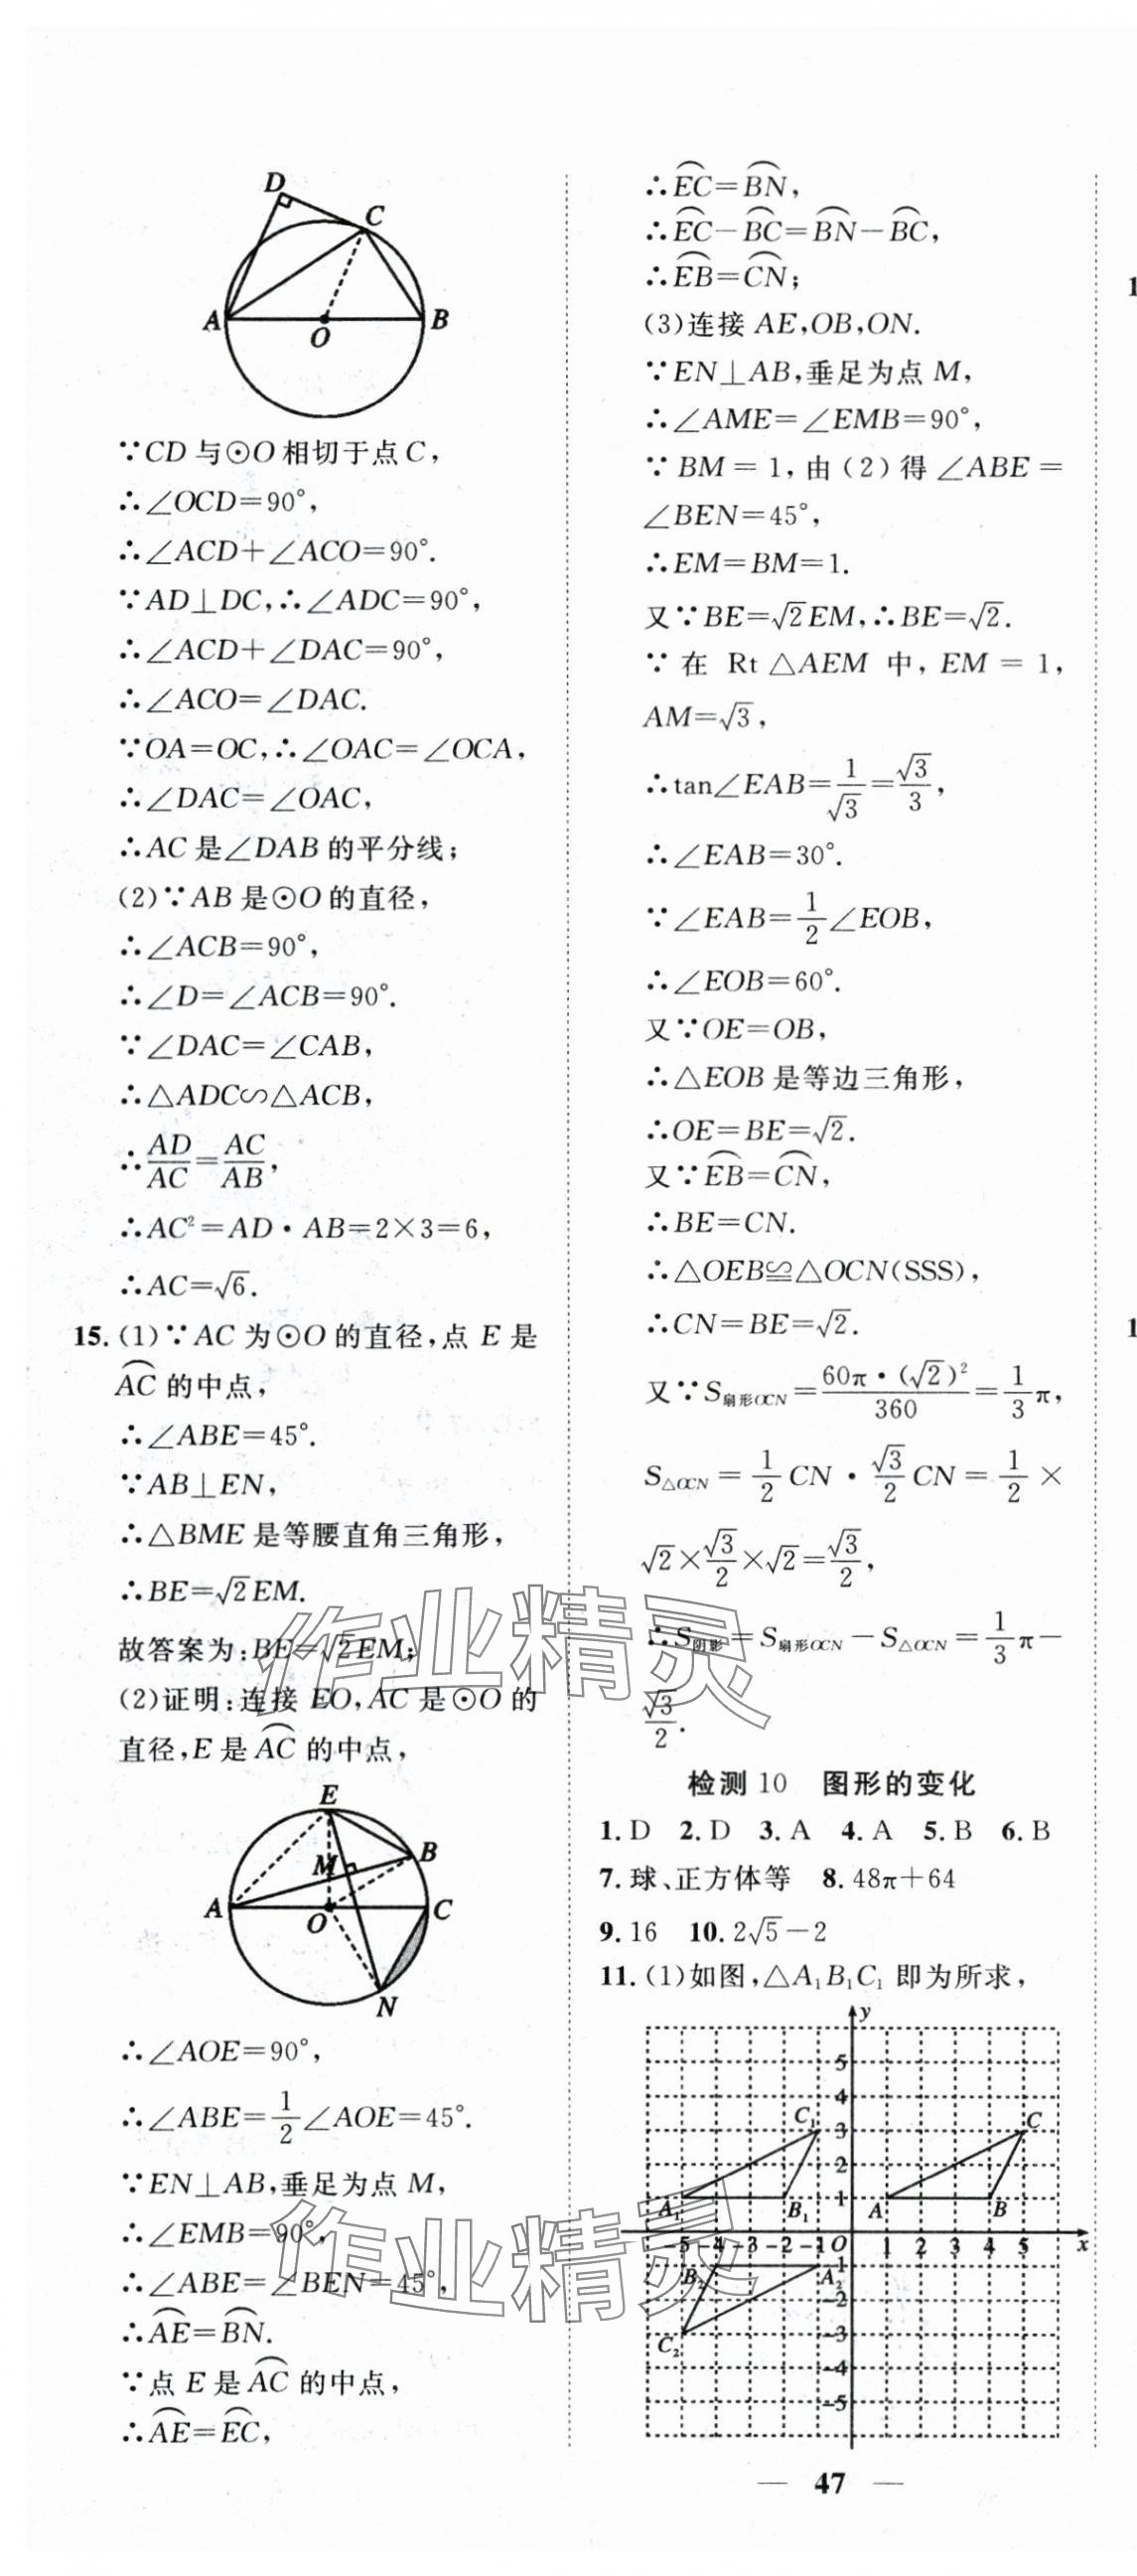 D
C
A
O
B
∵CD与⊙O相切于点C,
∴∠OCD=90°,
∴∠ACD+∠ACO=90°.
∵AD⊥DC,∴∠ADC=90°,
∴∠ACD+∠DAC=90°,
∴∠ACO=∠DAC.
∵OA=OC,∴∠OAC=∠OCA,
∴∠DAC=∠OAC,
∴AC是∠DAB的平分线;
(2)∵AB是⊙O的直径,
∴∠ACB=90°,
∴∠D=∠ACB=90°.
∵∠DAC=∠CAB,
∴△ADC∽△ACB,
∴AD/AC=AC/AB,
∴AC²=AD·AB=2×3=6,
∴AC=√6.
15.(1)∵AC为⊙O的直径,点E是
⌒AC的中点,
∴∠ABE=45°.
∵AB⊥EN,
∴△BME是等腰直角三角形,
∴BE=√2EM.
故答案为:BE=√2EM;
(2)证明:连接EO,AC是⊙O的
直径,E是⌒AC的中点,
E
B
M
A
O
C
N
∴∠AOE=90°,
∴∠ABE=1/2∠AOE=45°.
∵EN⊥AB,垂足为点M,
∴∠EMB=90°,
∴∠ABE=∠BEN=45°,
∴⌒AE=⌒BN.
∵点E是⌒AC的中点,
∴⌒AE=⌒EC,
∴⌒EC=⌒BN,
∴⌒EC-⌒BC=⌒BN-⌒BC,
∴⌒EB=⌒CN;
(3)连接AE,OB,ON.
∵EN⊥AB,垂足为点M,
∴∠AME=∠EMB=90°,
∵BM=1,由(2)得∠ABE=
∠BEN=45°,
∴EM=BM=1.
又∵BE=√2EM,∴BE=√2.
∵在Rt△AEM中,EM=1,
AM=√3,
∴tan∠EAB=1/√3=√3/3,
∴∠EAB=30°.
∵∠EAB=1/2∠EOB,
∴∠EOB=60°.
又∵OE=OB,
∴△EOB是等边三角形,
∴OE=BE=√2.
又∵⌒EB=⌒CN,
∴BE=CN.
∴△OEB≌△OCN(SSS),
∴CN=BE=√2.
又∵S扇形OCN=60π·(√2)²/360=1/3π,
S△OCN=1/2CN·√3/2CN=1/2×
√2×√3/2×√2=√3/2,
∴S阴影=S扇形OCN-S△OCN=1/3π-
√3/2.
检测10 图形的变化
1.D 2.D 3.A 4.A 5.B 6.B
7.球、正方体等 8.48π+64
9.16 10.2√5-2
11.(1)如图,△A₁B₁C₁即为所求,
y
5
4
C₁ 3 C
2
1
A₁ B₁ A B
-5 -4 -3 -2 -1 O 1 2 3 4 5 x
B₂ A₂ -1
-2
C₂ -3
-4
-5
— 47 —
作业精灵
作业精灵
1
1